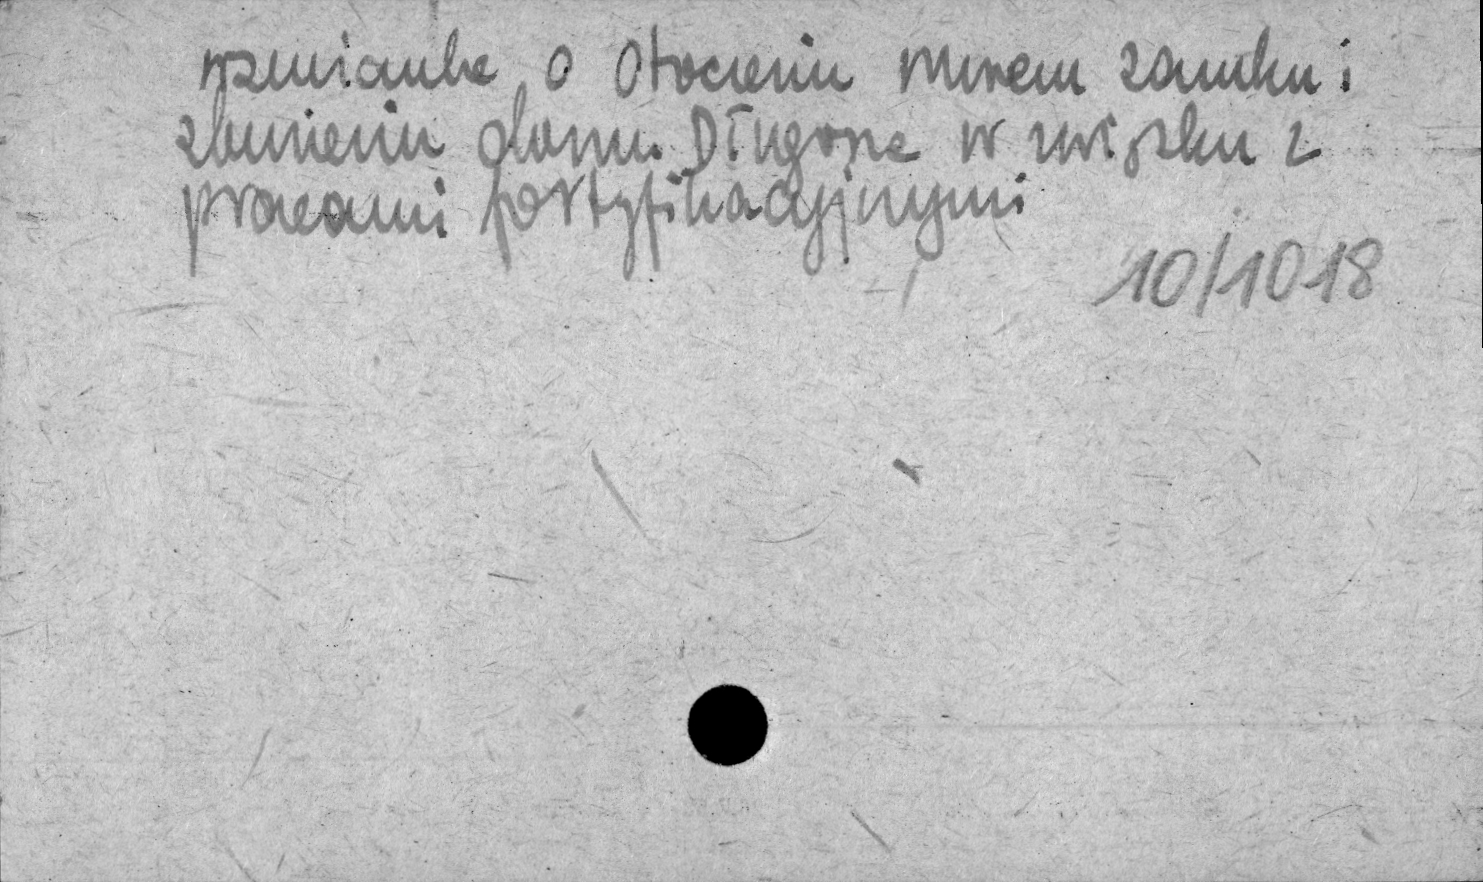 wzmianka o otoczeniu murem zamku i
zburzeniu domu Długosza w związku z
pracami fortyfikacyjnymi
10/1018